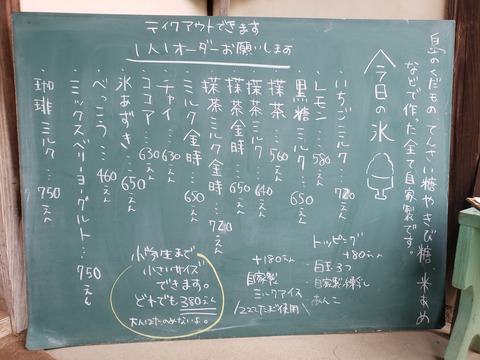 テイクアウトできます
1人1オーダーお願いします
島のくだもの、てんさい糖やきび糖、米あめ
などで作った全て自家製です。
今日の氷
・いちごミルク…720えん
・レモン…580えん
・黒糖ミルク…650えん
・抹茶…560えん
・抹茶ミルク…640えん
・抹茶金時…650えん
・抹茶ミルク金時…720えん
・ミルク金時…650えん
・チャイ…630えん
・ココア…630えん
・氷あずき…650えん
・べっこう…460えん
・ミックスベリーヨーグルト…750えん
・珈琲ミルク…750えん
トッピング
+80えん
・白玉3つ
・自家製練乳
・あんこ
+180えん
自家製
ミルクアイス
小学生まで
小さいサイズ
できます。
どれでも380えん
大人はたのめないよ。